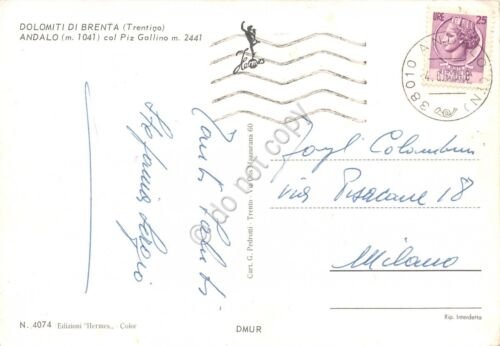 DOLOMITI DI BRENTA (Trentino)
ANDALO (m. 1041) col Piz Gallino m. 2441
Hermes
LIRE 25
38010 AN
(TN)
Tanti saluti
Stefania Sergio
do not copy
Cart. G. Pedrotti - Trento
60
Fam. Colombini
via Pisacane 18
Milano
N. 4074 Edizioni "Hermes„ - Color
DMUR
Rip. Interdetta